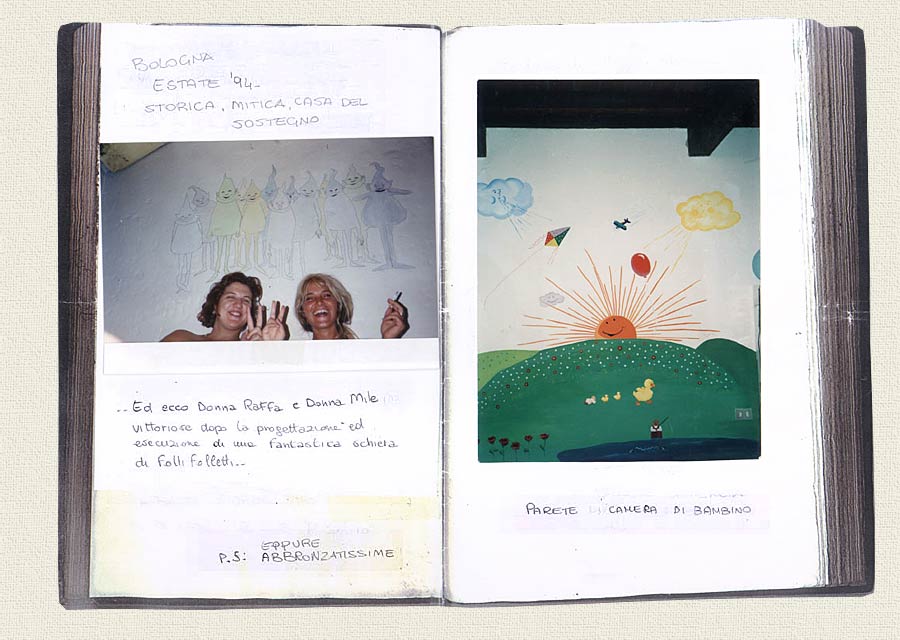 BOLOGNA
ESTATE '94-
STORICA, MITICA, CASA DEL
SOSTEGNO
..Ed ecco Donna Raffa e Donna Mile
vittoriose dopo la progettazione ed
esecuzione di una fantastica schiera
di Folli Folletti..
EPPURE
P.S: ABBRONZATISSIME
PARETE DI CAMERA DI BAMBINO